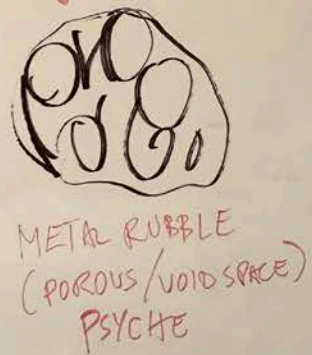 METAL RUBBLE
(POROUS/VOID SPACE)
PSYCHE